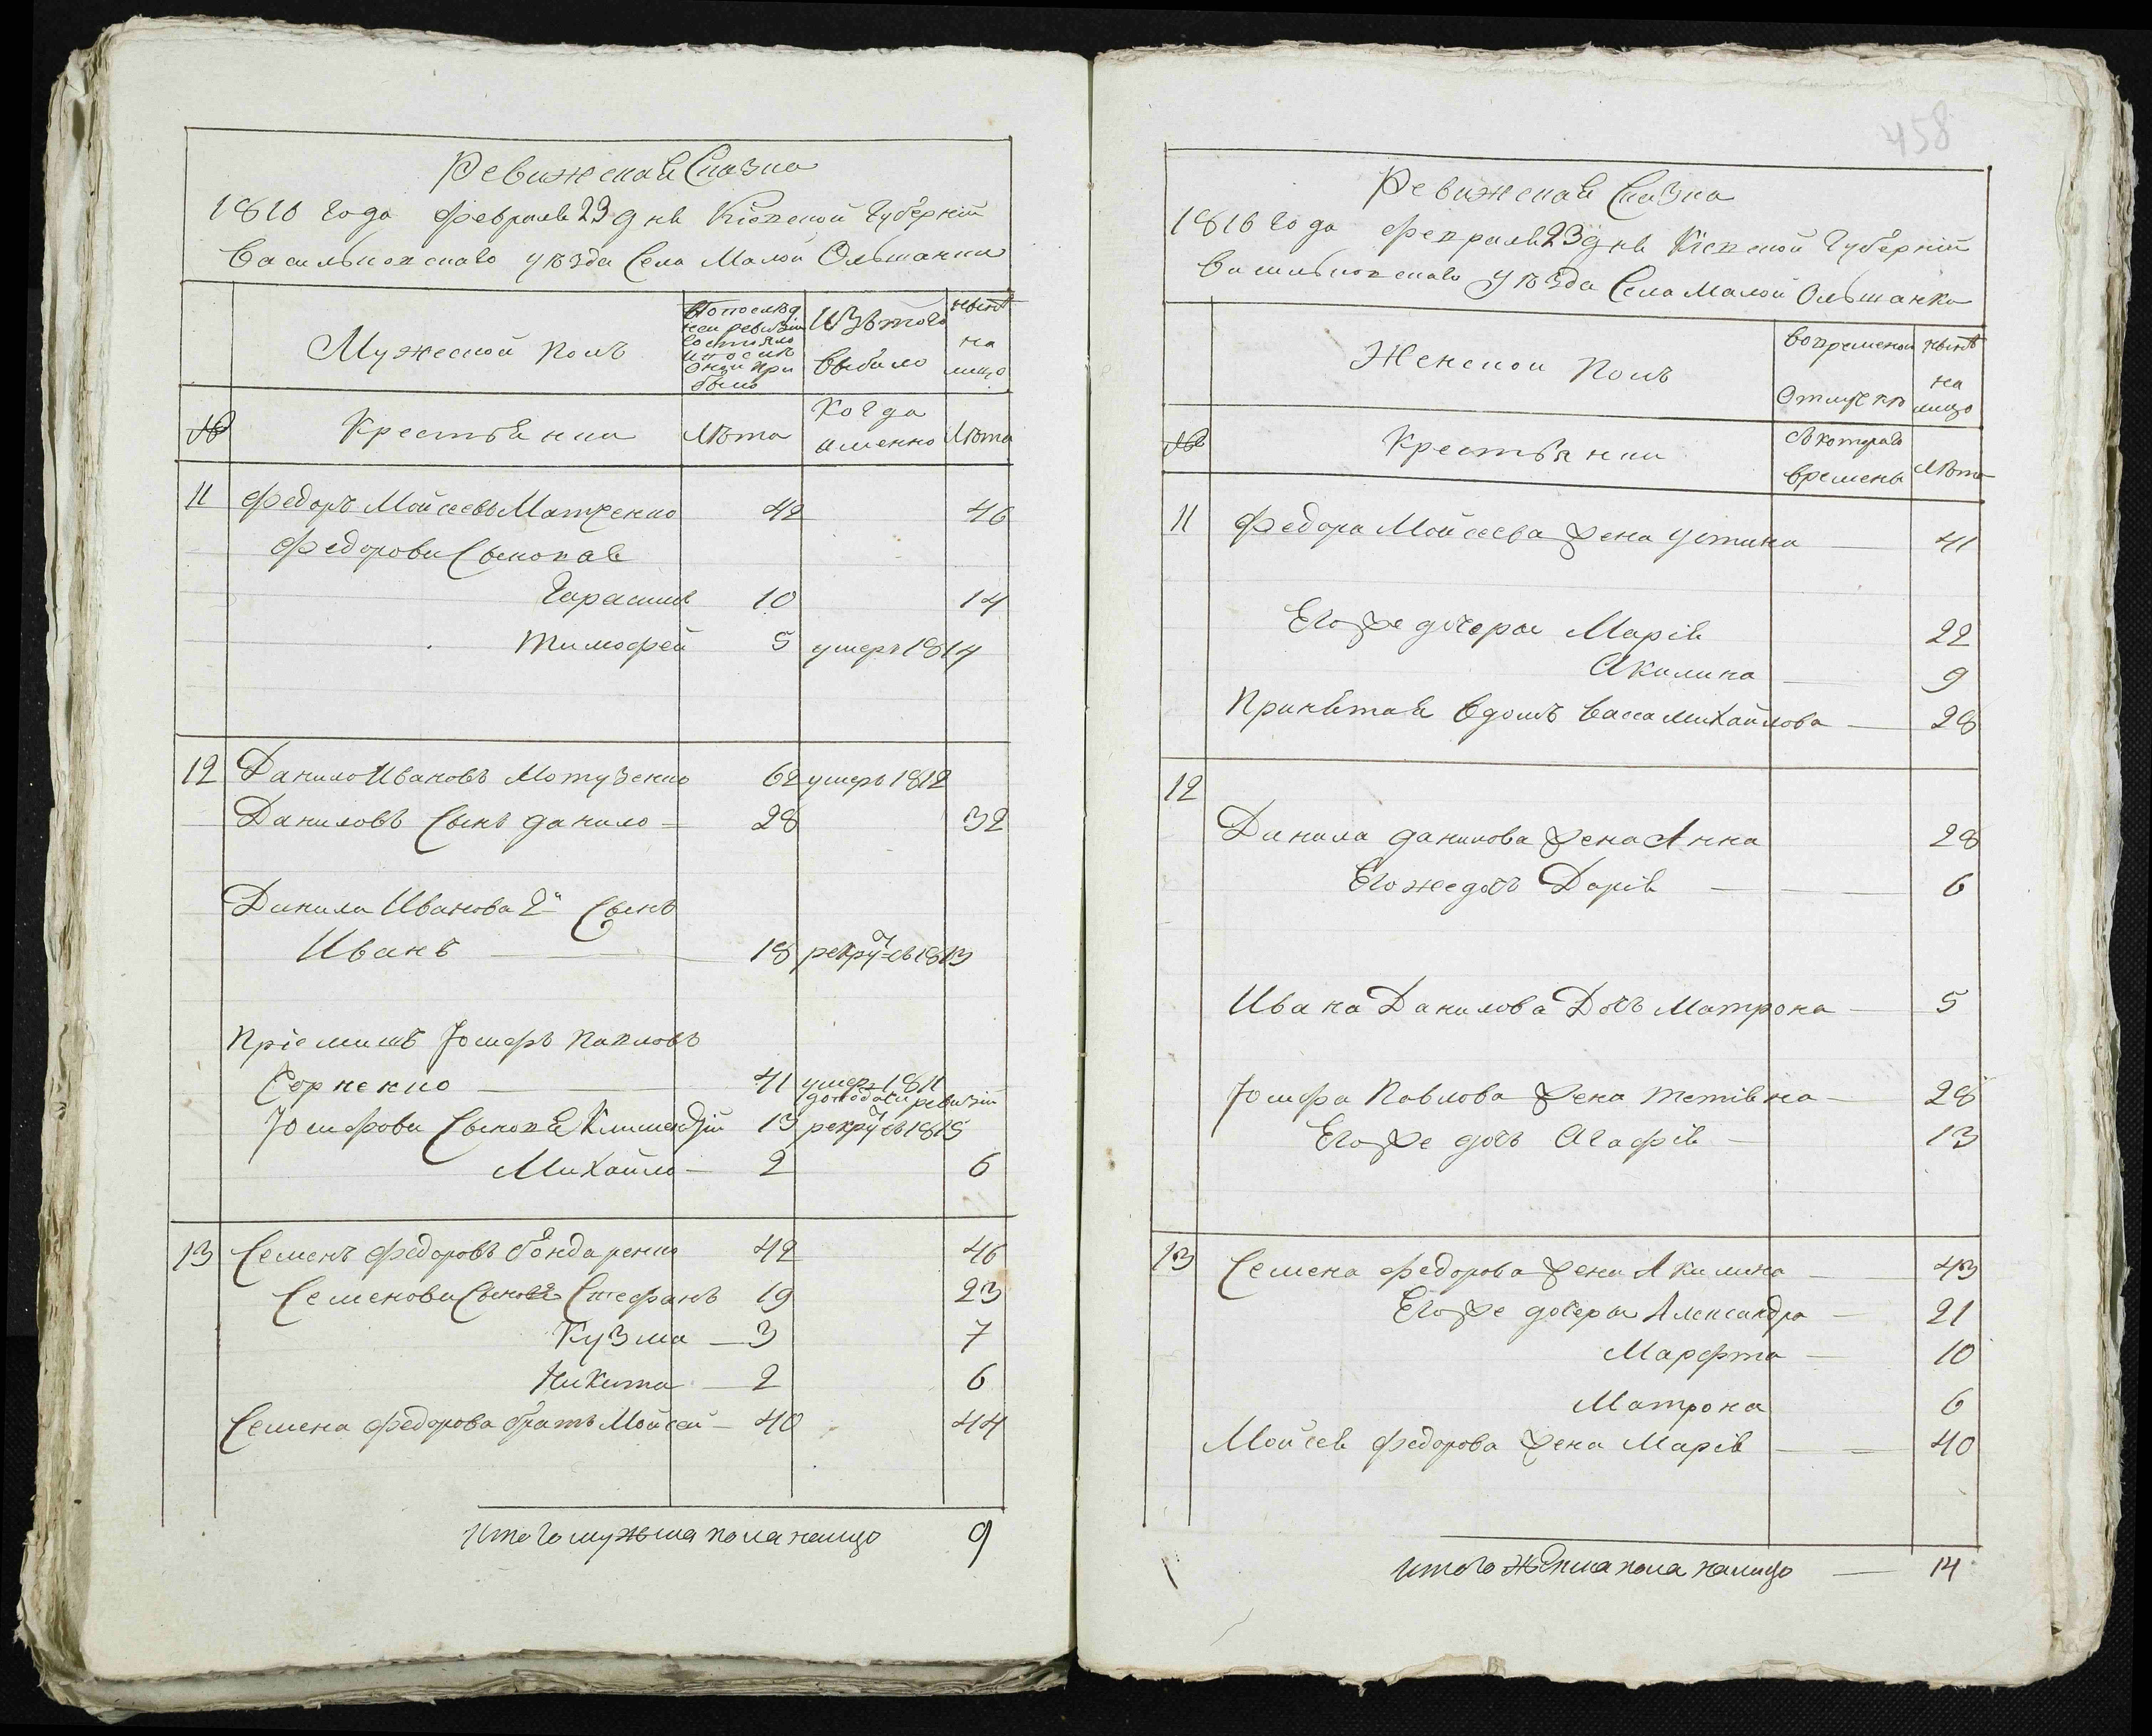 Ревижская Сказка
1816 года февраля 23 дня Кіевской Губерніи
Васильковскаго уѣзда Села Малой Ольшанки
Мужеской полъ
По послѣд
ней ревизіи
состояло
и послѣ
оной при
было
Изъ того
выбыло
нынѣ
на
лицо
№
Крестьяники
Лѣта
Когда
именно
Лѣта
11 Федоръ Мойсеевъ Матченко 42 46
Федорови Сыновья
Гарасимъ 10 14
Тимофей 5 умеръ 1814
12 Данило Ивановъ Мотузенко 62 умеръ 1812
Даниловъ Сынъ данило 28 32
Данила Иванова 2й Сынъ
Иванъ 18 рекру: въ 1813
Пріемишъ Іосифъ Павловъ
Сорпенко 41 умеръ 1811
до подачи ревизіи
Іосифови Сыновья Климентій 13 рекру въ 1815
Михайло 2 6
13 Семенъ Федоровъ бондаренко 42 46
Семенови Сыновья Стефанъ 19 23
Кузма 3 7
Никита 2 6
Семена Федорова братъ Мойсей 40 44
Итого мужска пола налицо 9
458
Ревижская Сказка
1816 года февраля 23 дня Кіевской Губерніи
Васильковскаго уѣзда Села Малой Ольшанки
Женской полъ
во временной
Отлучкѣ
нынѣ
на
лицо
№
Крестьяники
съ котораго
времены
Лѣта
11 Федора Мойсеева жена устина 41
Егоже дочеры Марія 22
Акилина 9
Принятая вдомъ Васса михайлова 28
12
Данила данилова жена Анна 28
Егоже дочь Дарія 6
Ивана Данилова Дочь Матрона 5
Іосифа Павлова жена Тетіяна 28
Егоже дочь Агафія 13
13 Семена Федорова жена Акилина 43
Егоже дочеры Александра 21
Марфта 10
Матрона 6
Мойсея Федорова жена Марія 40
Итого женска пола налицо 14